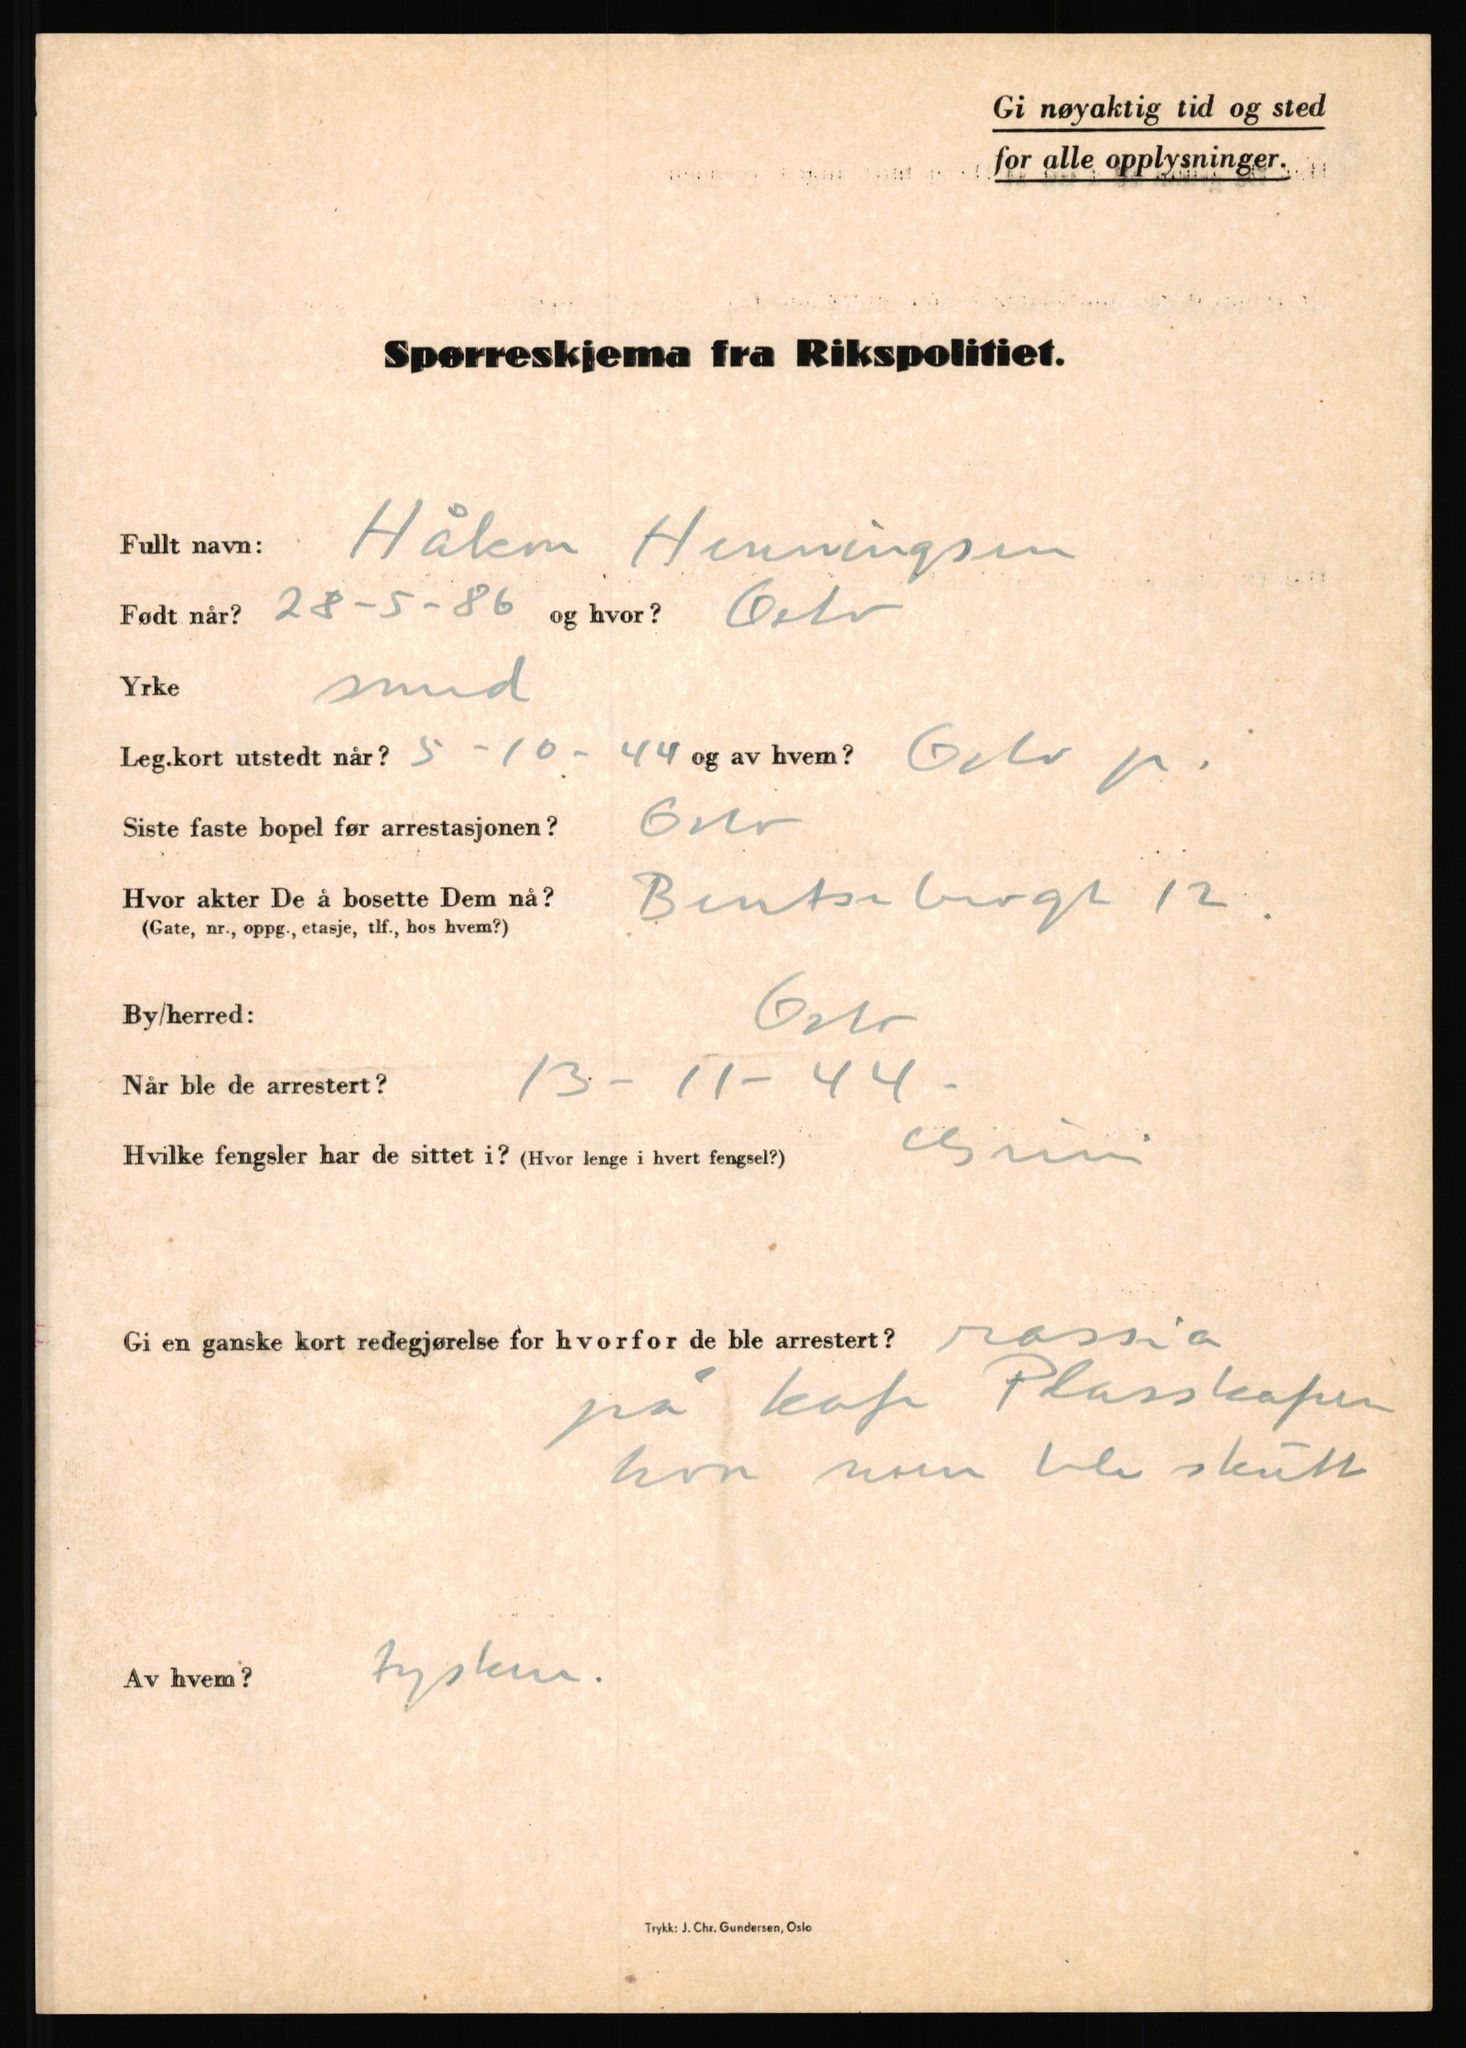 Gi nøyaktig tid og sted
for alle opplysninger.
Spørreskjema fra Rikspolitiet.
Fullt navn: Håkon Henningsen
Født når? 28-5-86 og hvor? Oslo
Yrke smed
Leg.kort utstedt når? 5-10-44 og av hvem? Oslo p.
Siste faste bopel før arrestasjonen? Oslo
Hvor akter De å bosette Dem nå? Bentsebrogt 12.
(Gate, nr., oppg., etasje, tlf., hos hvem?)
By/herred: Oslo
Når ble de arrestert? 13-11-44-
Hvilke fengsler har de sittet i? (Hvor lenge i hvert fengsel?) Grini
Gi en ganske kort redegjørelse for hvorfor de ble arrestert? rassia
på kafe Plasskafeen
hvor noen ble skutt
Av hvem? tyskere.
Trykk: J. Chr. Gundersen, Oslo